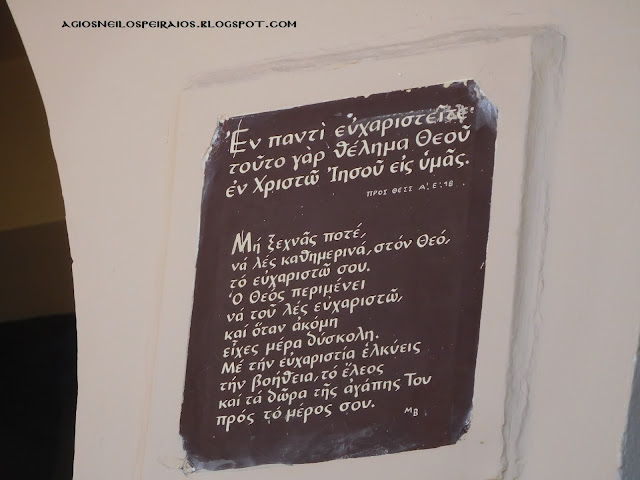 AGIOSNEILOSPEIRAIOS.BLOGSPOT.COM
Ἐν παντὶ εὐχαριστεῖτε
τοῦτο γὰρ θέλημα Θεοῦ
ἐν Χριστῷ Ἰησοῦ εἰς ὑμᾶς.
ΠΡΟΣ ΘΕΣΣ Α΄, Ε΄. 18
Μή ξεχνᾶς ποτέ,
νά λές καθημερινά, στόν Θεό,
τό εὐχαριστῶ σου.
Ὁ Θεός περιμένει
νά τοῦ λές εὐχαριστῶ,
καί ὅταν ἀκόμη
εἶχες μέρα δύσκολη.
Μέ τήν εὐχαριστία ἑλκύεις
τήν βοήθεια, τό ἔλεος
καί τά δῶρα τῆς ἀγάπης Του
πρός τό μέρος σου.
ΜΒ